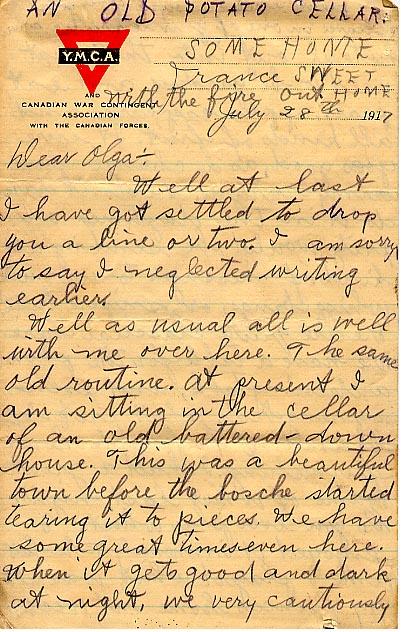 AN OLD POTATO CELLAR.
SOME HOME
Y.M.C.A.
France SWEET
AND
with the fire out HOME
CANADIAN WAR CONTINGENT
July 28th 1917
ASSOCIATION
WITH THE CANADIAN FORCES.
Dear Olga:-
Well at last
I have got settled to drop
you a line or two. I am sorry
to say I neglected writing
earlier.
Well as usual all is well
with me over here. The same
old routine. At present I
am sitting in the cellar
of an old battered-down
house. This was a beautiful
town before the bosche started
tearing it to pieces. We have
some great times even here.
When it gets good and dark
at night, we very cautiously